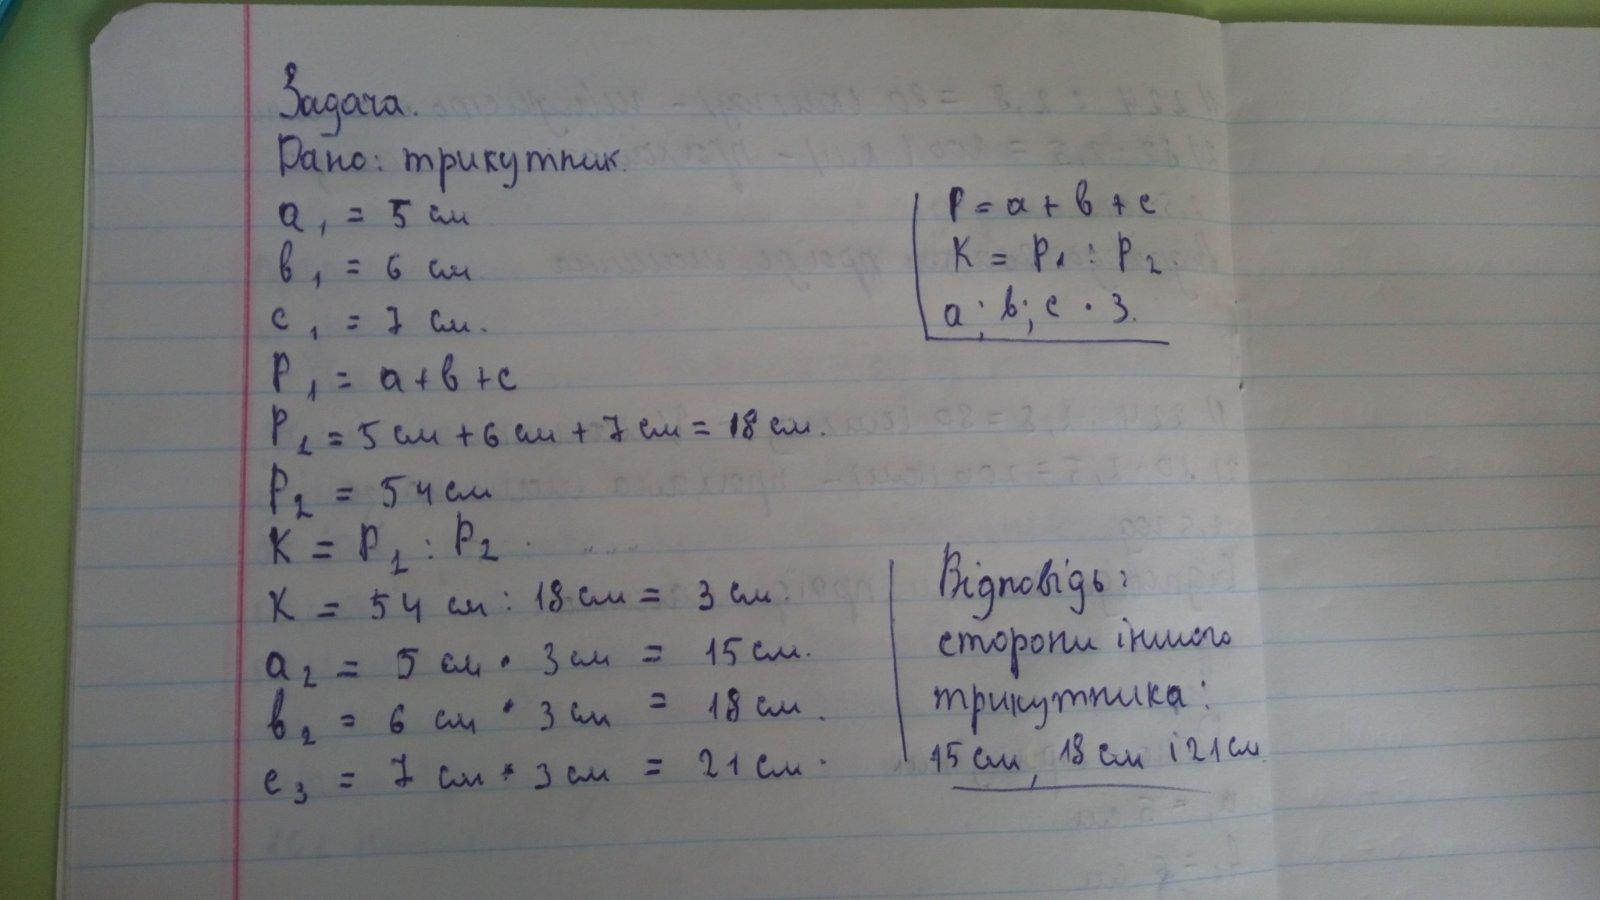 Задача.
Дано: трикутник.
a₁ = 5 см
в₁ = 6 см
c₁ = 7 см.
P₁ = a + в + c
P₁ = 5 см + 6 см + 7 см = 18 см.
P₂ = 54 см
K = P₁ : P₂
K = 54 см : 18 см = 3 см.
a₂ = 5 см · 3 см = 15 см.
в₂ = 6 см · 3 см = 18 см.
c₃ = 7 см · 3 см = 21 см.
P = a + в + c
K = P₁ : P₂
a; в; c · 3.
Відповідь:
сторони іншого
трикутника:
15 см, 18 см і 21 см.